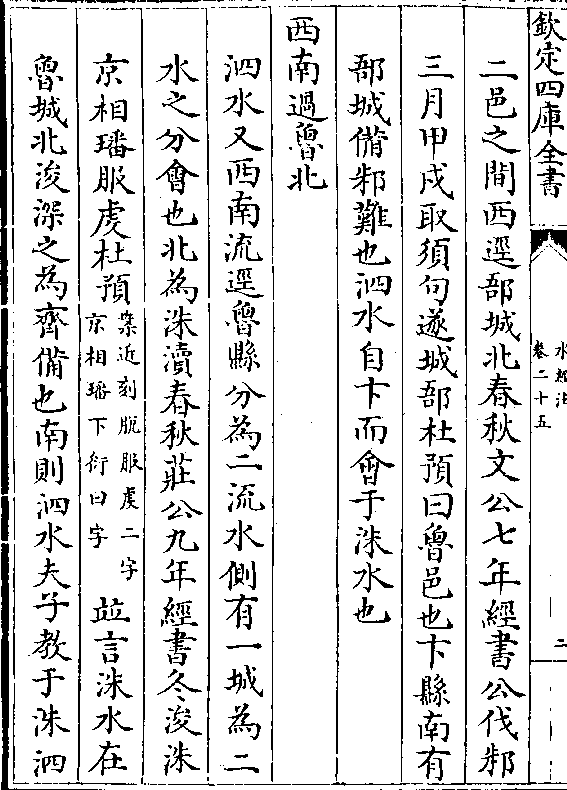 欽定四庫全書
水經注
卷二十五
二
二邑之間西逕郚城北春秋文公七年經書公伐邾
三月甲戌取須句遂城郚杜預曰魯邑也卞縣南有
郚城備邾難也泗水自卞而會于洙水也
西南過魯北
泗水又西南流逕魯縣分為二流水側有一城為二
水之分會也北為洙瀆春秋莊公九年經書冬浚洙
京相璠服䖍杜預案近刻脫服䖍二字京相璠下衍曰字並言洙水在
魯城北浚深之為齊備也南則泗水夫子教于洙泗